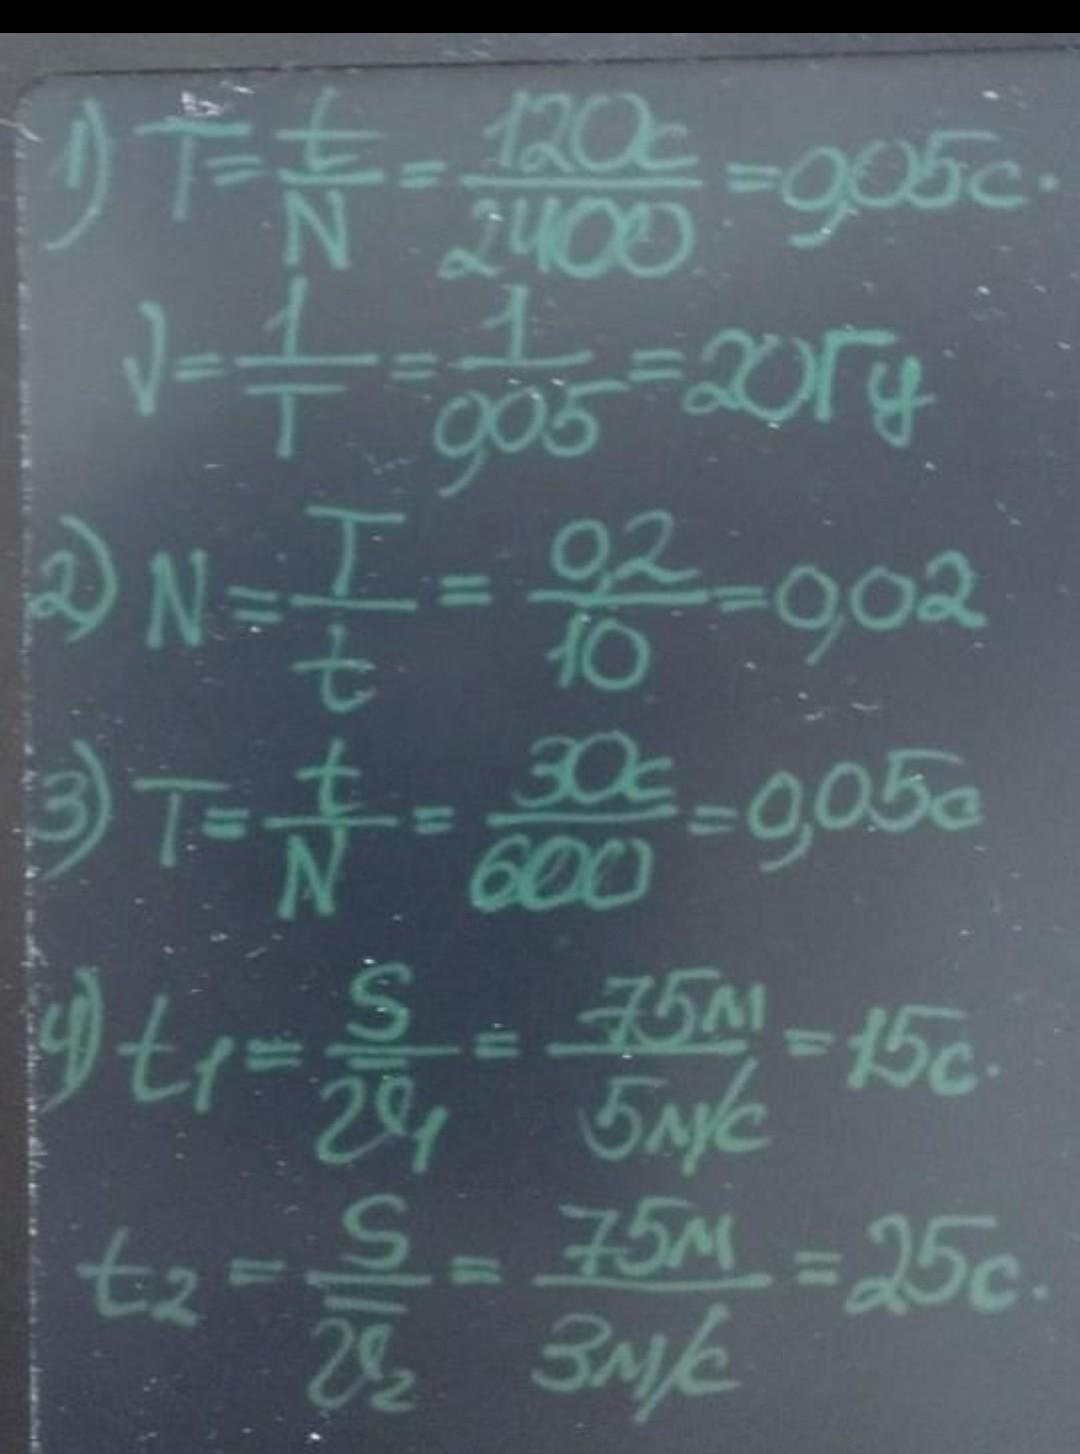 1) T = t/N = 120с/2400 = 0,05с.
ν = 1/T = 1/0,05 = 20Гц
2) N = T/t = 0,2/10 = 0,02
3) T = t/N = 30с/600 = 0,05с
4) t₁ = S/v̅₁ = 75м/5м/с = 15с.
t₂ = S/v̅₂ = 75м/3м/с = 25с.